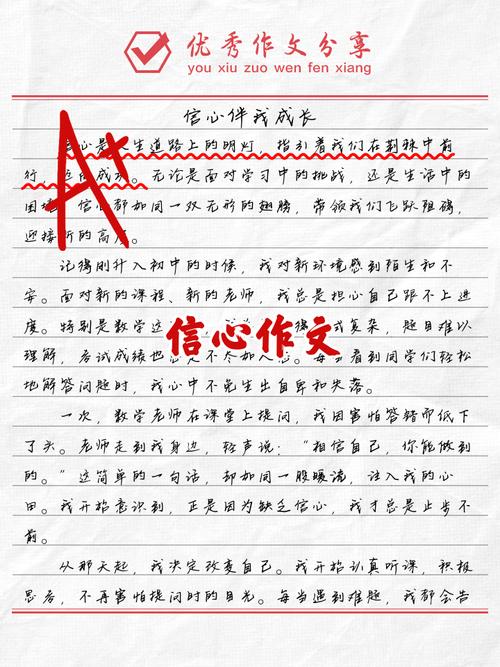 优秀作文分享
you xiu zuo wen fen xiang
信心伴我成长
心是人生道路上的明灯，指引着我们在荆棘中前
行，迈向成功。无论是面对学习中的挑战，还是生活中的
困境，信心都如同一双无形的翅膀，带领我们飞跃阻碍，
迎接新的高度。
记得刚升入初中的时候，我对新环境感到陌生和不
安。面对新的课程、新的老师，我总是担心自己跟不上进
度。特别是数学这 式复杂，题目难以
理解，考试成绩也总是不尽如人意。每当看到同学们轻松
地解答问题时，我心中不免生出自卑和失落。
信心作文
一次，数学老师在课堂上提问，我因害怕答错而低下
了头。老师走到我身边，轻声说：“相信自己，你能做到
的。”这简单的一句话，却如同一股暖流，注入我的心
田。我开始意识到，正是因为缺乏信心，我才总是止步不
前。
从那天起，我决定改变自己。我开始认真听课，积极
思考，不再害怕提问时的目光。每当遇到难题，我都会告
A+